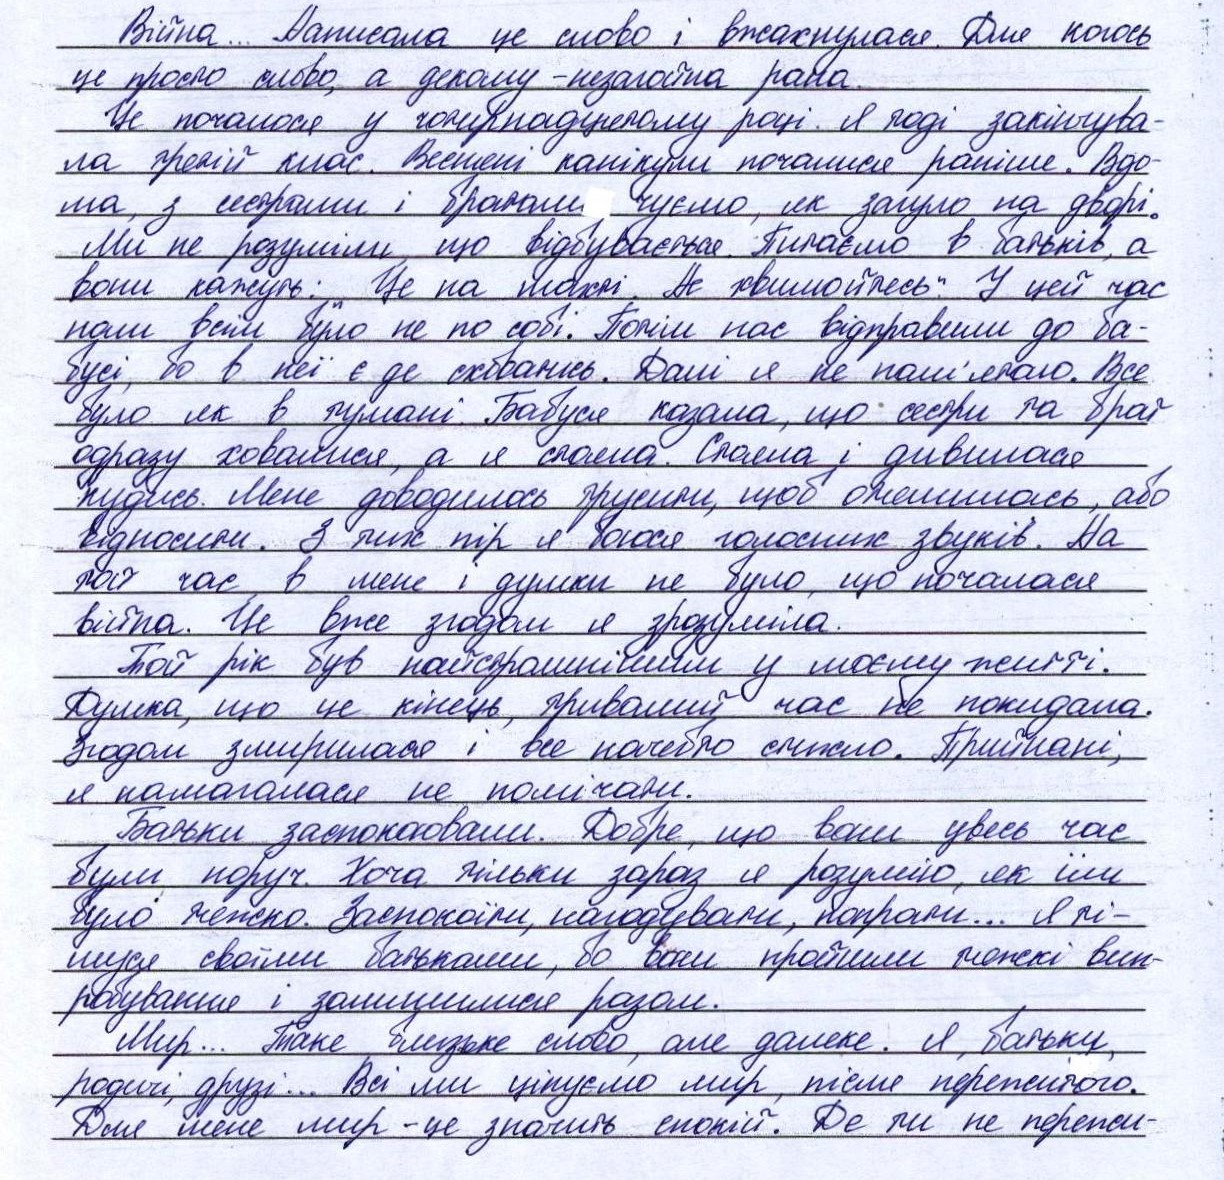 Війна... Написала це слово і вжахнулася. Для когось
це просто слово, а декому - незагойна рана.
Це почалося у чотирнадцятому році. Я тоді закінчува-
ла третій клас. Весняні канікули почалися раніше. Вдо-
ма, з сестрами і братами чуємо, як загуло на дворі.
Ми не розуміли, що відбувається. Питаємо в батьків, а
вони кажуть: „Це на шахті. Не хвилюйтесь". У цей час
нам всім було не по собі. Потім нас відправили до ба-
бусі, бо в неї є де сховатись. Далі я не пам'ятаю. Все
було як в тумані. Бабуся казала, що сестри та брат
одразу ховалися, а я стояла. Стояла і дивилася
кудись. Мене доводилось трусити, щоб отямилась, або
відносити. З тих пір я боюся голосних звуків. На
той час в мене і думки не було, що почалася
війна. Це вже згодом я зрозуміла.
Той рік був найстрашнішим у моєму житті.
Думка, що це кінець, тривалий час не покидала.
Згодом змирилася і все начебто стихло. Прийнані,
я намагалася не помічати.
Батьки заспокоювали. Добре, що вони увесь час
були поруч. Хоча тільки зараз я розумію, як їм
було тяжко. Заспокоїти, нагодувати, попрати... Я пи-
шуся своїми батьками, бо вони пройшли тяжкі вип-
робування і залишилися разом.
Мир... Таке близьке слово, але далеке. Я, батьки,
родичі, друзі... Всі ми цінуємо мир, після пережитого.
Для мене мир - це значить спокій. Де ти не пережи-